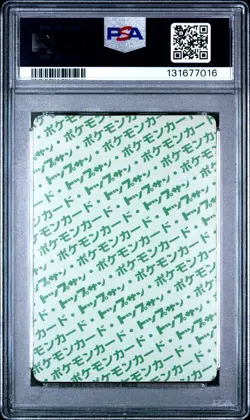 PSA
131677016
ポケモンカード
トップサン・ポケモンカード
ポケモンカード・トップサン・
トップサン・ポケモンカード
ポケモンカード・トップサン・
トップサン・ポケモンカード
ポケモンカード・トップサン・
トップサン・ポケモンカード
ポケモンカード・トップサン・
トップサン・ポケモンカード
ポケモンカード・トップサン
ポケモンカード